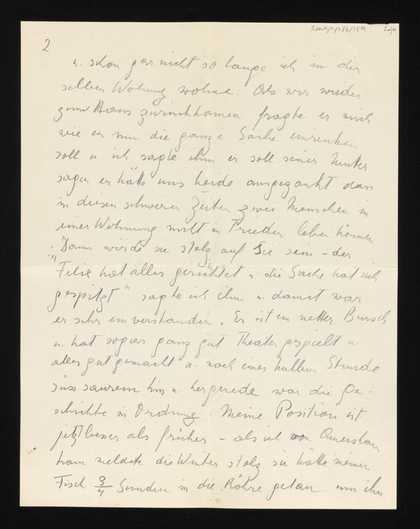 2
u. schon gar nicht so lange ich in der
selben Wohnung wohne. Als wir wieder
zum Haus zurückkamen fragte er mich
wie er nun die ganze Sache einrenken
soll u ich sagte ihm er soll seiner Mutter
sagen er hätte uns beide ausgezankt dass
in diesen schweren Zeiten zwei Menschen in
einer Wohnung nicht in Frieden leben können
"Dann würde sie stolz auf Sie sein - der
"Felix hat alles gerichtet u die Sache hat sich
" sagte ich ihm u damit war
er sehr einverstanden. Er ist ein netter Bursch
u hat sogar ganz gut Theater gespielt u
alles gut gemacht u. nach einer halben Stunde
süss saurem hin u hergerede war die Ge-
schichte in Ordnung. Meine Position ist
jetzt besser als früher - als ich von
kam meldete die Mutter stolz sie hätte meinen
Fisch 3/4 Stunden in die Röhre getan um ihn